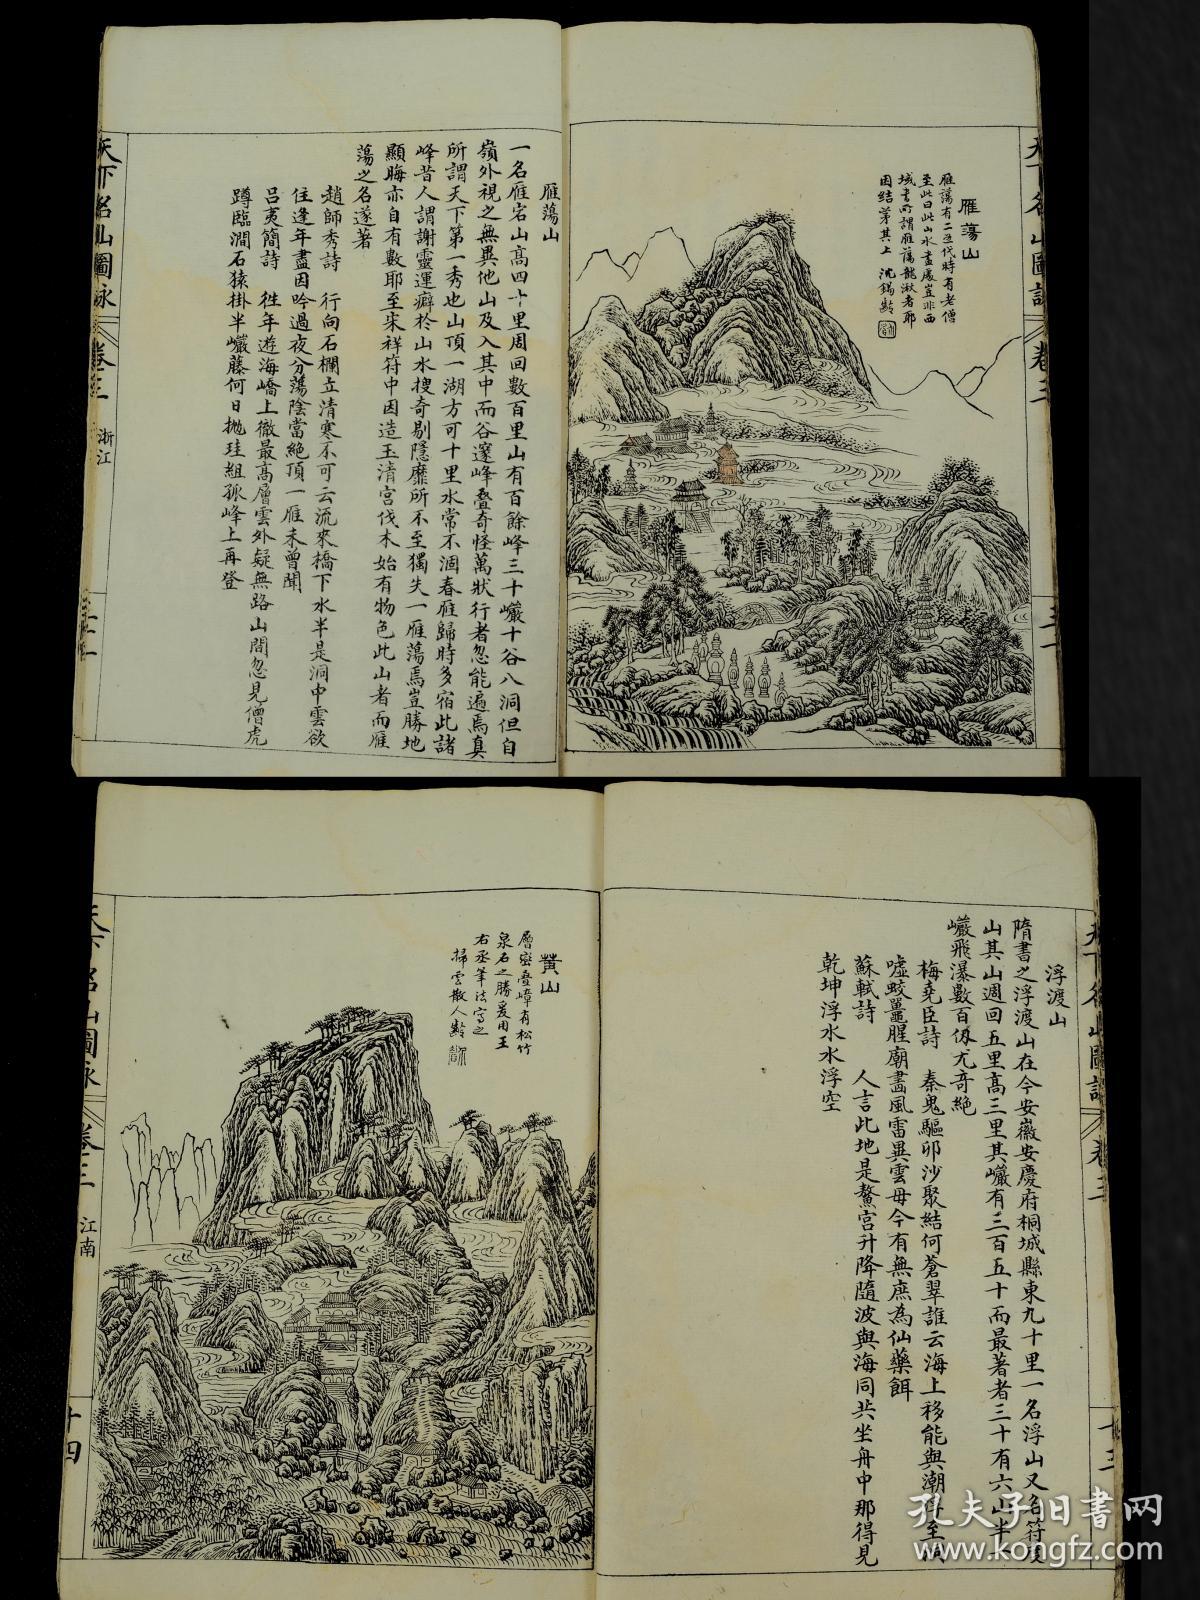 天下名山圖詠
卷三
雁蕩山
雁蕩有二五代時有老僧
至此曰此山水盡處豈非西
域書所謂雁蕩龍湫者耶
因結茅其上 沈錫齡
雁蕩山
一名雁宕山高四十里周回數百里山有百餘峰三十巗十谷八洞但自
嶺外視之無異他山及入其中而谷邃峰叠奇怪萬狀行者忽能遍焉真
所謂天下第一秀也山頂一湖方可十里水常不涸春雁歸時多宿此諸
峰昔人謂謝靈運癖於山水搜奇剔隱靡所不至獨失一雁蕩焉豈勝地
顯晦亦自有數耶至宋祥符中因造玉清宮伐木始有物色此山者而雁
蕩之名遂著
趙師秀詩 行向石欄立清寒不可云流來橋下水半是洞中雲欲
住逢年盡因吟過夜分蕩陰當絶頂一雁未曾聞
呂夷簡詩 徃年遊海嶠上徹最高層雲外疑無路山間忽見僧虎
蹲臨澗石猿掛半巗藤何日拋珪組孤峰上再登
天下名山圖詠
卷三
浙江
天下名山圖詠
卷三
十三
浮渡山
隋書之浮渡山在今安徽安慶府桐城縣東九十里一名浮山又名符度
山其山週回五里高三里其巗有三百五十而最著者三十有六山半
巗飛瀑數百仭尤奇絶
梅堯臣詩 秦鬼驅卭沙聚結何蒼翠誰云海上移能與潮升至
噓蛟鼉腥廟畵風雷異雲母今有無庶為仙藥餌
蘇軾詩 人言此地是鰲宮升降隨波與海同共坐舟中那得見
乾坤浮水水浮空
黄山
層巒叠嶂有松竹
泉石之勝爰用王
右丞筆法寫之
掃雲散人齡
天下名山圖詠
卷三
江南
十四
孔夫子旧書网
www.kongfz.com